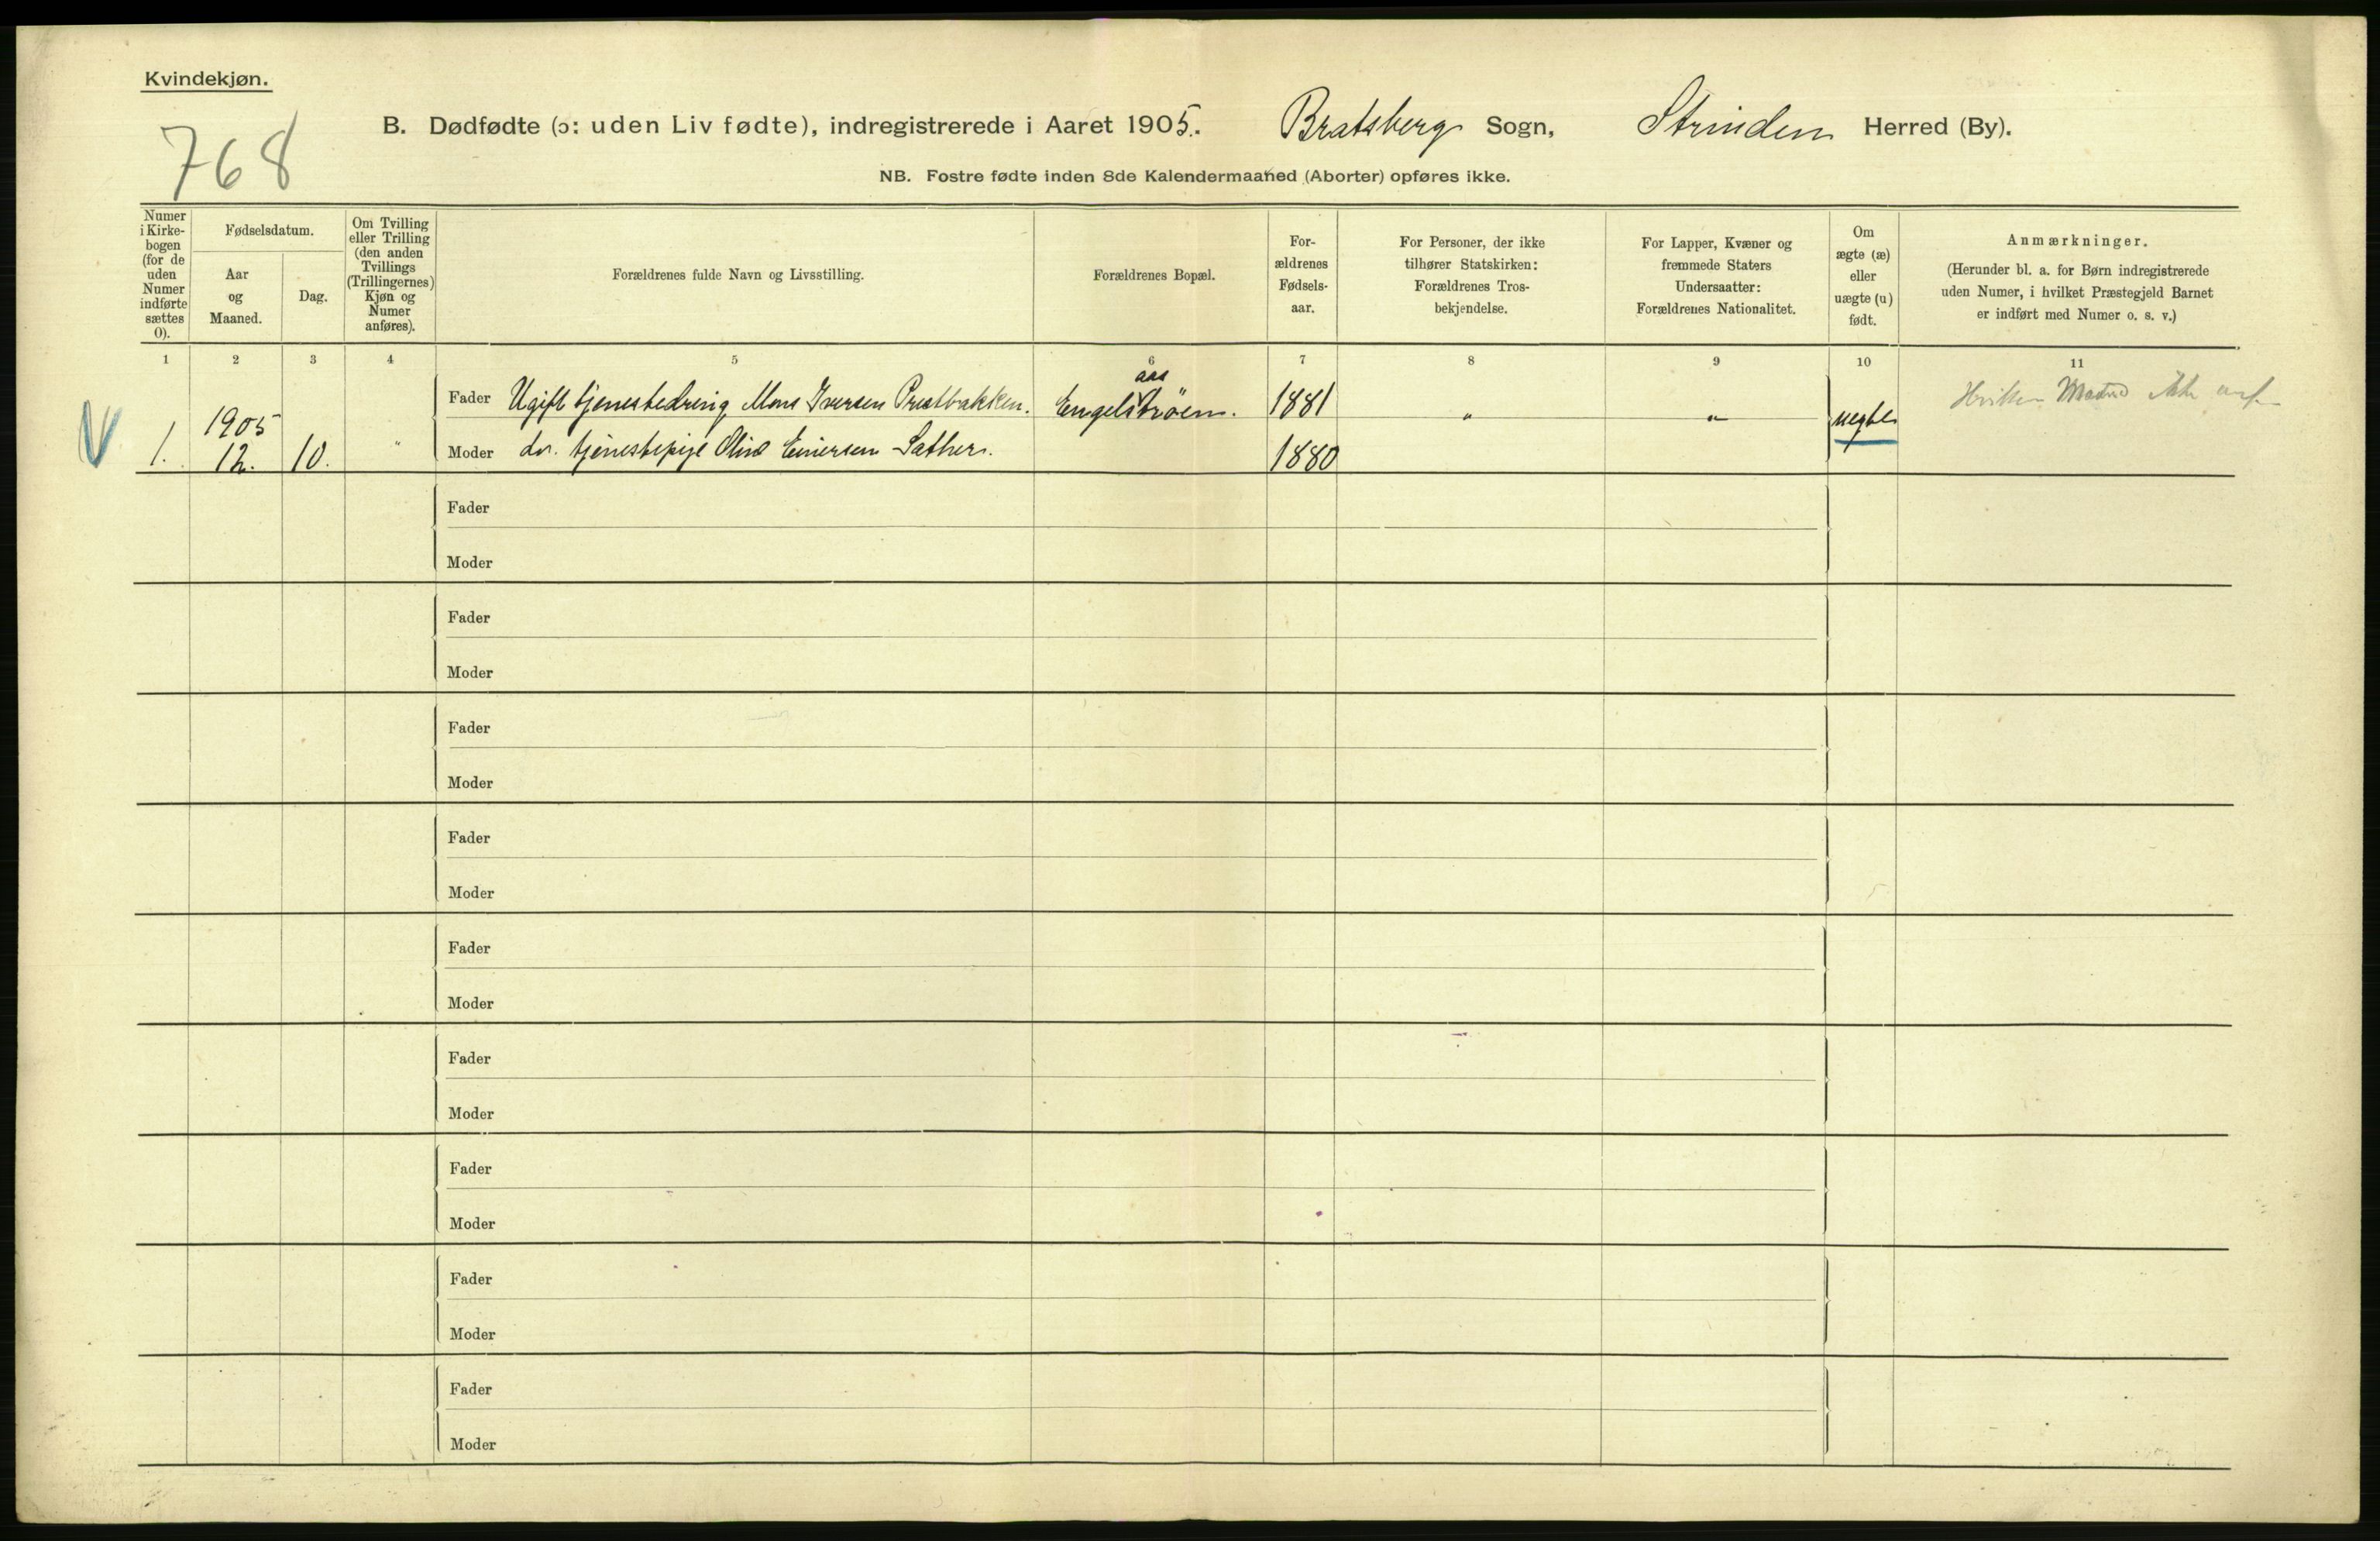 Kvindekjøn.
768
B. Dødfødte (ɔ: uden Liv fødte), indregistrerede i Aaret 1905. Bratsberg Sogn, Strinden Herred (By).
NB. Fostre fødte inden 8de Kalendermaaned (Aborter) opføres ikke.
Numer
i Kirke-
bogen
(for de
uden
Numer
indførte
sættes
0).
Fødselsdatum.
Aar
og
Maaned.
Dag.
Om Tvilling
eller Trilling
(den anden
Tvillings
(Trillingernes)
Kjøn og
Numer
anføres).
Forældrenes fulde Navn og Livsstilling.
Forældrenes Bopæl.
For-
ældrenes
Fødsels-
aar.
For Personer, der ikke
tilhører Statskirken:
Forældrenes Tros-
bekjendelse.
For Lapper, Kvæner og
fremmede Staters
Undersaatter:
Forældrenes Nationalitet.
Om
ægte (æ)
eller
uægte (u)
født.
Anmærkninger.
(Herunder bl. a. for Børn indregistrerede
uden Numer, i hvilket Præstegjeld Barnet
er indført med Numer o. s. v.)
1 2 3 4 5 6 7 8 9 10 11
1. 1905 12. 10. "
Fader Ugift tjenestedreng Mons Iversen Prestbakken. 1881 " " uegte
Moder do. tjenestepige Einersen Sæther. 1880
ikke
Fader
Moder
Fader
Moder
Fader
Moder
Fader
Moder
Fader
Moder
Fader
Moder
Fader
Moder
Fader
Moder
Fader
Moder